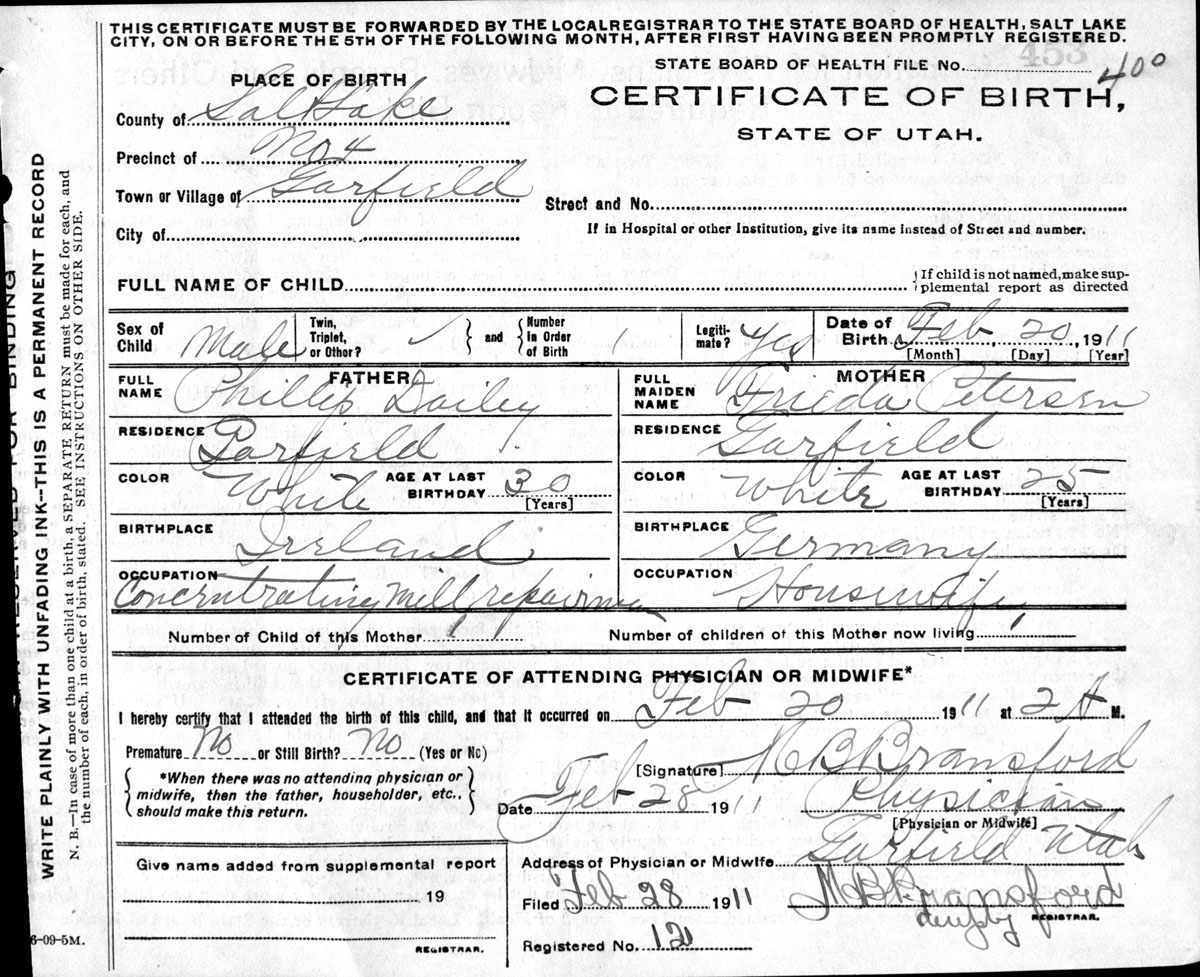 THIS CERTIFICATE MUST BE FORWARDED BY THE LOCAL REGISTRAR TO THE STATE BOARD OF HEALTH, SALT LAKE
CITY, ON OR BEFORE THE 5TH OF THE FOLLOWING MONTH, AFTER FIRST HAVING BEEN PROMPTLY REGISTERED.
STATE BOARD OF HEALTH FILE NO. 400
453
PLACE OF BIRTH
CERTIFICATE OF BIRTH,
STATE OF UTAH.
County of Salt Lake
Precinct of No 4
Town or Village of Garfield
Street and No.
City of
If in Hospital or other Institution, give its name instead of Street and number.
FULL NAME OF CHILD
{If child is not named, make sup-
plemental report as directed
Sex of Child Male
Twin, Triplet, or Other? } and { Number In Order of Birth 1
Legiti-mate? Yes
Date of Birth Feb 20, 1911
[Month] [Day] [Year]
FATHER
FULL NAME Phillip Dailey
RESIDENCE Garfield
COLOR White AGE AT LAST BIRTHDAY 30 [Years]
BIRTHPLACE Ireland
OCCUPATION Concentrating Mill repairman
MOTHER
FULL MAIDEN NAME Frieda Petersen
RESIDENCE Garfield
COLOR White AGE AT LAST BIRTHDAY 25 [Years]
BIRTHPLACE Germany
OCCUPATION Housewife
Number of Child of this Mother 1 Number of children of this Mother now living 1
CERTIFICATE OF ATTENDING PHYSICIAN OR MIDWIFE*
I hereby certify that I attended the birth of this child, and that it occurred on Feb 20 1911 at 2 A M.
Premature No or Still Birth? No (Yes or No)
{ *When there was no attending physician or
midwife, then the father, householder, etc.,
should make this return. }
[Signature] M B Bransford
Date Feb 28 1911 Physician
[Physician or Midwife]
Address of Physician or Midwife Garfield Utah
Give name added from supplemental report
19
REGISTRAR.
Filed Feb 28 1911 M B Bransford
deputy REGISTRAR.
Registered No. 121
WRITE PLAINLY WITH UNFADING INK--THIS IS A PERMANENT RECORD
N. B.—In case of more than one child at a birth, a SEPARATE RETURN must be made for each, and
the number of each, in order of birth, stated. SEE INSTRUCTIONS ON OTHER SIDE.
6-09-5M.